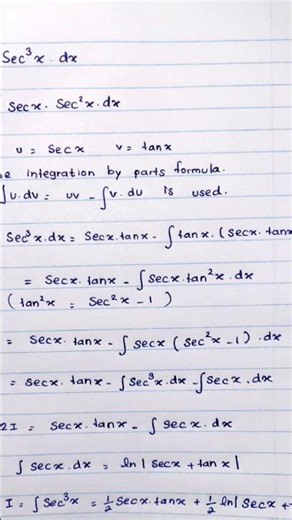 Sec³x · dx
Secx · Sec²x · dx
u = Secx v = tanx
integration by parts formula.
∫u.dv = uv - ∫v. du is used.
Sec³x.dx = Secx.tanx - ∫tanx. (Secx. tan
= Secx. tanx - ∫Secx.tan²x .dx
( tan²x = Sec²x - 1 )
= Secx. tanx - ∫Secx ( Sec²x - 1 ) .dx
= Secx. tanx - ∫Sec³x. dx - ∫Secx . dx
2I = Secx. tanx - ∫secx. dx
∫ secx. dx = ln | Secx + tanx |
I = ∫Sec³x = ½ Secx. tanx + ½ ln| Secx +